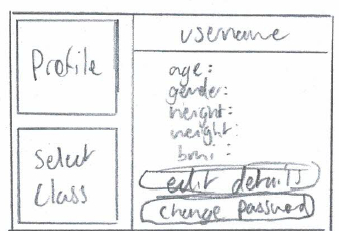 Profile
Select
Class
username
age:
gender:
height:
weight:
bmi:
edit details
change password